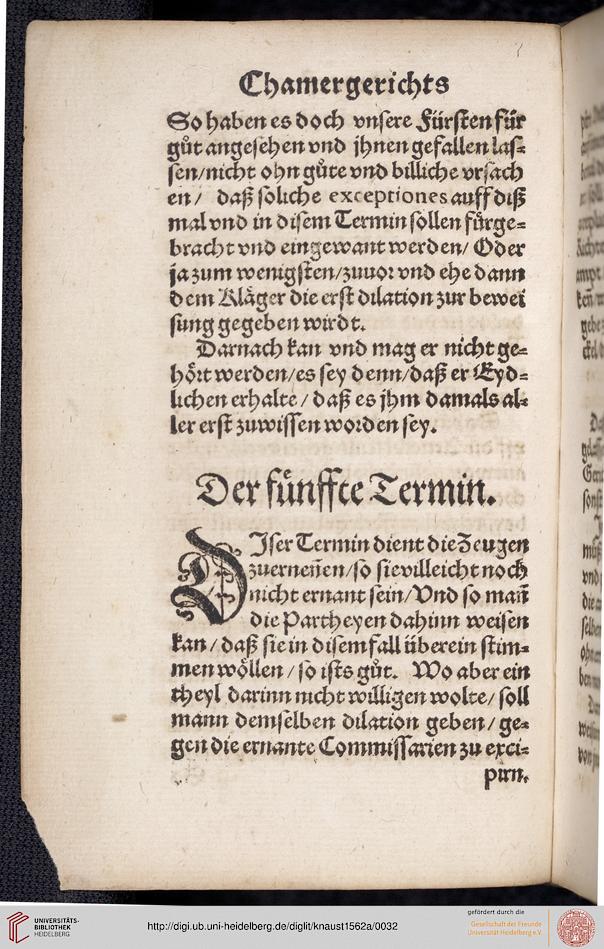 Chamergerichts
So haben es doch vnsere Fürsten für
gůt angesehen vnd jhnen gefallen las⸗
sen/nicht ohn gůte vnd billiche vrsach
en/ daß soliche exceptiones auff diß
mal vnd in disem Termin sollen fürge⸗
bracht vnd eingewant werden/ Oder
ja zum wenigsten/zuuor vnd ehe dann
dem Kläger die erst dilation zur bewei
sung gegeben wirdt.
Darnach kan vnd mag er nicht ge⸗
hört werden/es sey denn/daß er Eyd⸗
lichen erhalte/ daß es jhm damals al⸗
ler erst zuwissen worden sey.
Der fünffte Termin.
DIser Termin dient die Zeugen
zuerneñen/so sie villeicht noch
nicht ernant sein/Vnd so mañ
die Partheyen dahinn weisen
kan/daß sie in disem fall überein stim⸗
men wöllen/so ists gůt. Wo aber ein
theyl darinn nicht willigen wolte/soll
mann demselben dilation geben/ge⸗
gen die ernante Commissarien zu exci⸗
pirn.
UNIVERSITÄTS-
BIBLIOTHEK
HEIDELBERG
http://digi.ub.uni-heidelberg.de/diglit/knaust1562a/0032
gefördert durch die
Gesellschaft der Freunde
Universität Heidelberg e.V.